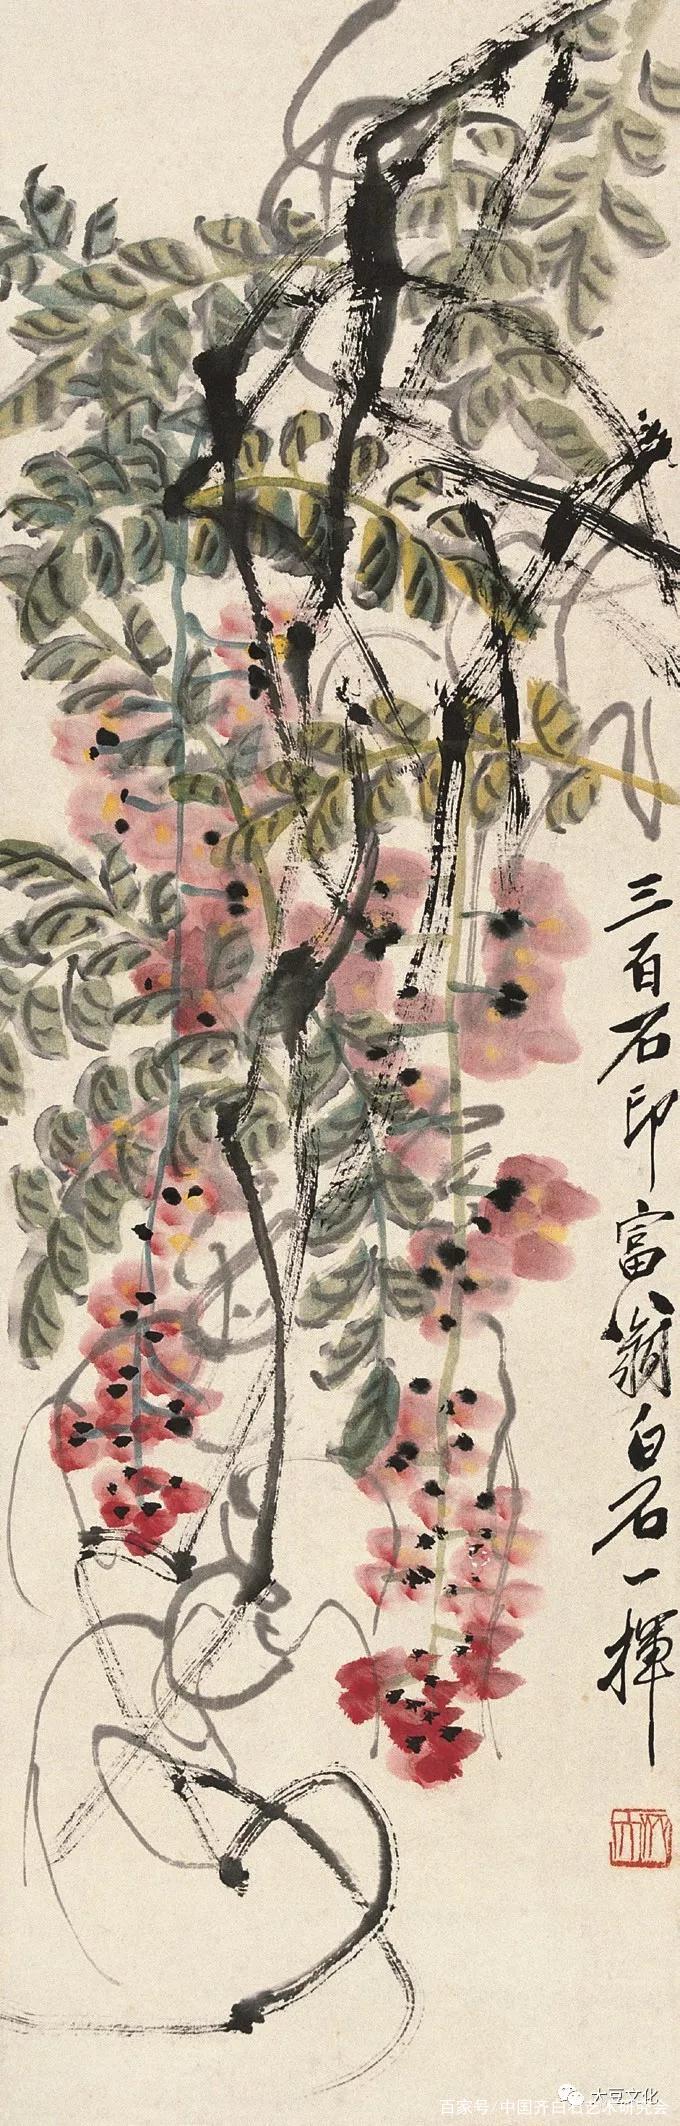 三百石印富翁白石一揮
大豆文化
百家号/中国齐白石艺术研究会